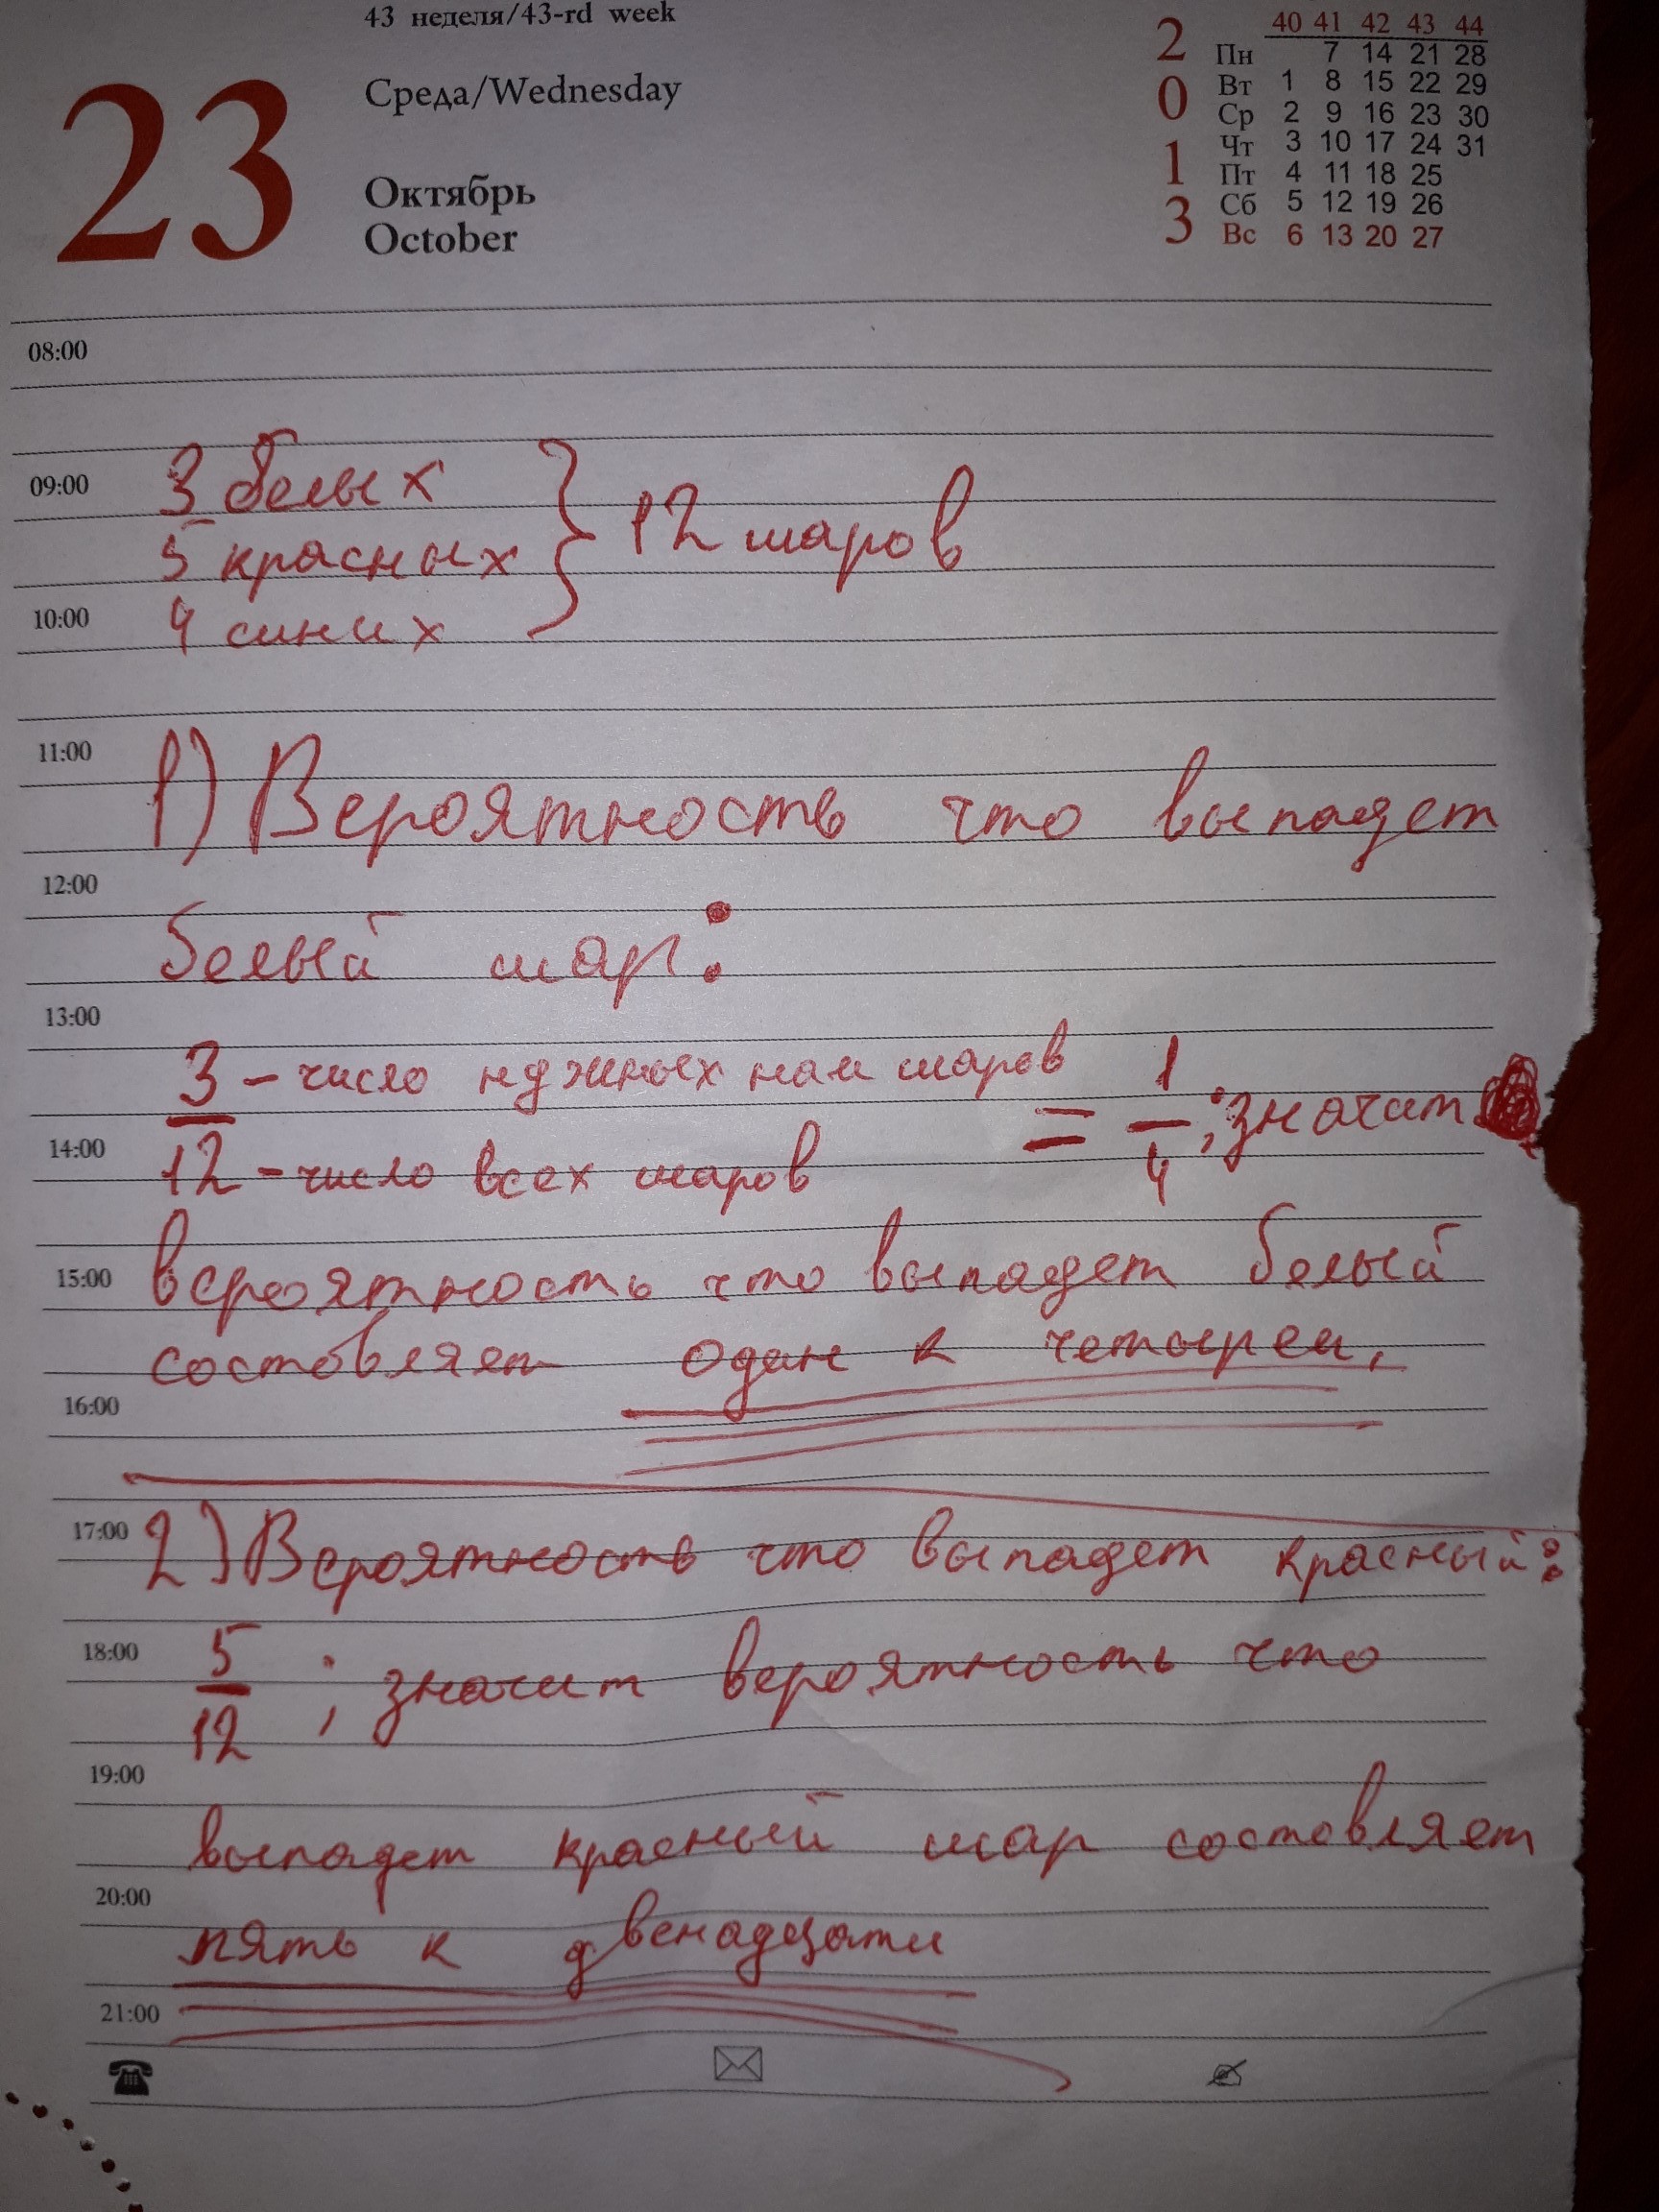 43 неделя/43-rd week
23
Среда/Wednesday
Октябрь
October
2013
40 41 42 43 44
Пн 7 14 21 28
Вт 1 8 15 22 29
Ср 2 9 16 23 30
Чт 3 10 17 24 31
Пт 4 11 18 25
Сб 5 12 19 26
Вс 6 13 20 27
08:00
09:00 3 белых
5 красных } 12 шаров
10:00 4 синих
11:00
1) Вероятность что выпадет
12:00
белый шар:
13:00
3 – число нужных нам шаров = 1/4 ; значит
14:00
12 – число всех шаров
15:00 вероятность что выпадет белый
состовляет один к четырем.
16:00
17:00 2) Вероятность что выпадет красный:
18:00 5/12 ; значит вероятность что
19:00
выпадет красный шар состовляет
20:00
пять к двенадцати
21:00